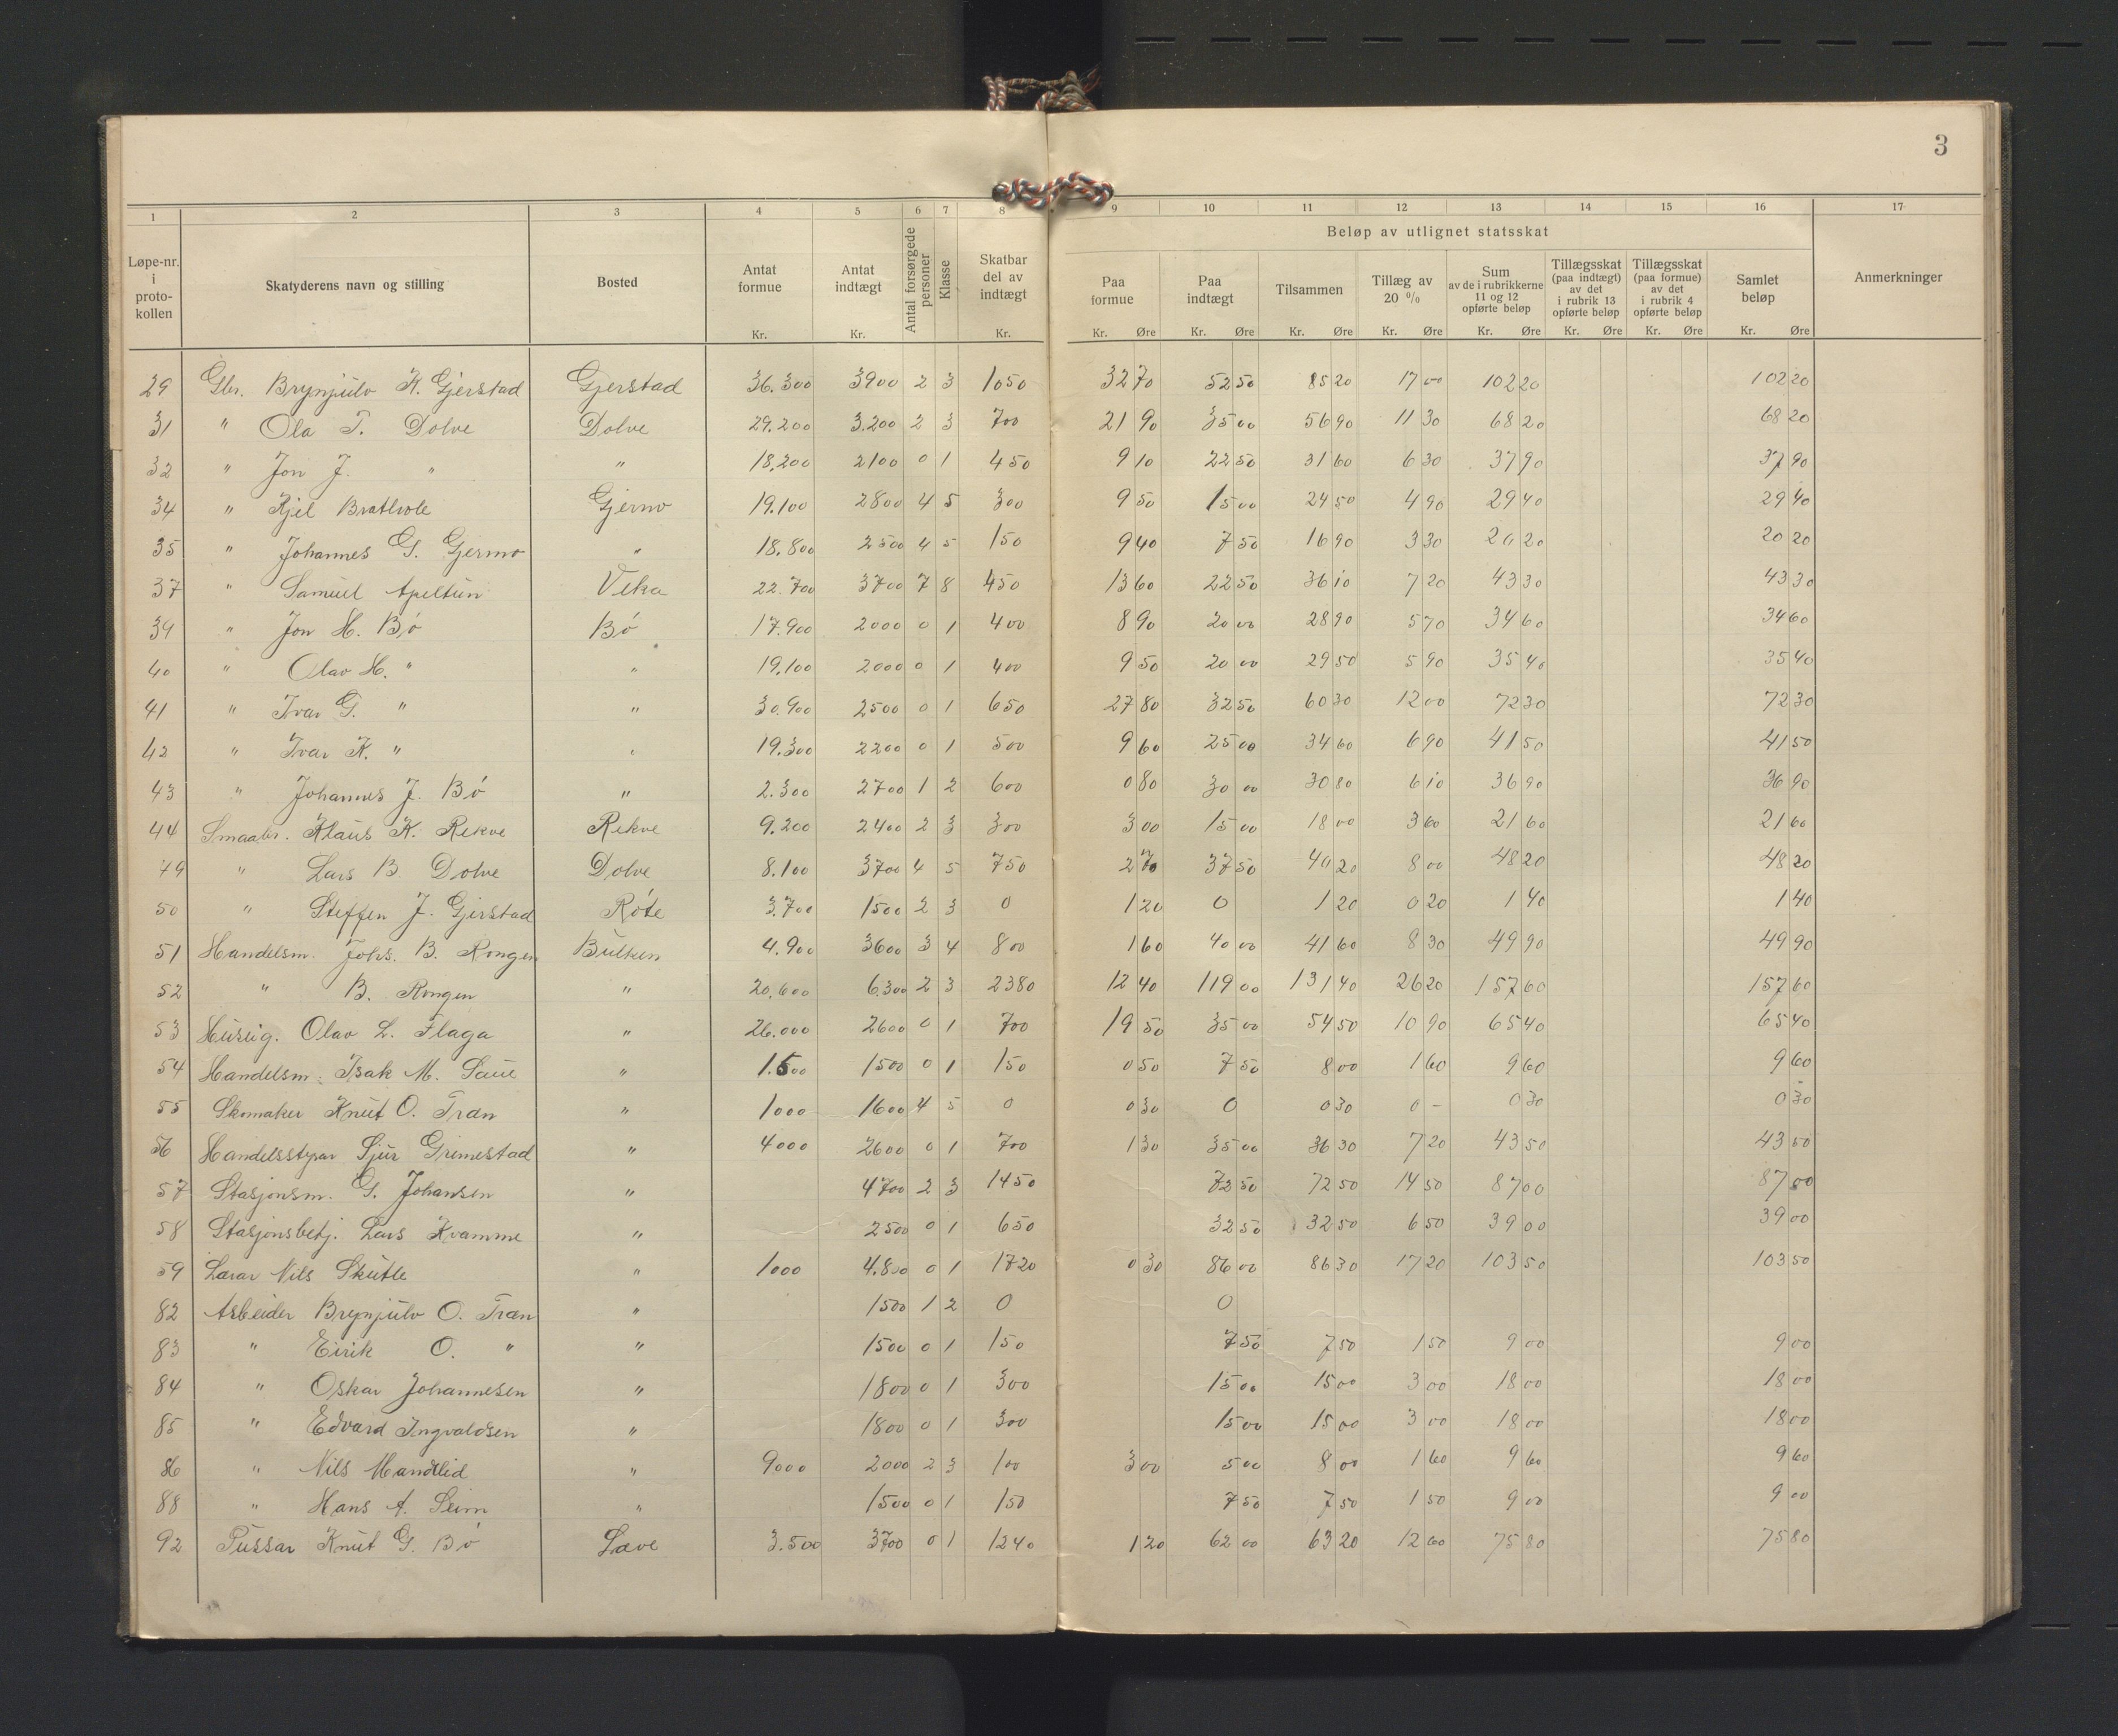 3
1 2 3 4 5 6 7 8 9 10 11 12 13 14 15 16 17
Beløp av utlignet statsskat
Løpe-nr. i proto-kollen Skatyderens navn og stilling Bosted Antat formue Kr. Antat indtægt Kr. Antal forsørgede personer Klasse Skatbar del av indtægt Kr. Paa formue Kr. Øre Paa indtægt Kr. Øre Tilsammen Kr. Øre Tillæg av 20 % Kr. Øre Sum av de i rubrikkerne 11 og 12 opførte beløp Kr. Øre Tillægsskat (paa indtægt) av det i rubrik 13 opførte beløp Kr. Øre Tillægsskat (paa formue) av det i rubrik 4 opførte beløp Kr. Øre Samlet beløp Kr. Øre Anmerkninger
29 Gbr. Brynjulv K. Gjerstad Gjerstad 36.300 3900 2 3 1050 32 70 52 50 85 20 17 00 102 20 102 20
31 " Ola T. Dolve Dolve 29.200 3.200 2 3 700 21 90 35 00 56 90 11 30 68 20 68 20
32 " Jon J. " " 18.200 2100 0 1 450 9 10 22 50 31 60 6 30 37 90 37 90
34 " Kjel Brathole Gjerno 19.100 2800 4 5 300 9 50 15 00 24 50 4 90 29 40 29 40
35 " Johannes G. Gjermo " 18.800 2500 4 5 150 9 40 7 50 16 90 3 30 20 20 20 20
37 " Samuel Apeltun Veka 22.700 3700 7 8 450 13 60 22 50 36 10 7 20 43 30 43 30
39 " Jon H. Bø Bø 17.900 2000 0 1 400 8 90 20 00 28 90 5 70 34 60 34 60
40 " Olav H. " " 19.100 2000 0 1 400 9 50 20 00 29 50 5 90 35 40 35 40
41 " Ivar G. " " 30.900 2500 0 1 650 27 80 32 50 60 30 12 00 72 30 72 30
42 " Ivar K. " " 19.300 2200 0 1 500 9 60 25 00 34 60 6 90 41 50 41 50
43 " Johannes J. Bø " 2.300 2700 1 2 600 0 80 30 00 30 80 6 10 36 90 36 90
44 Smaabr. Klaus K. Rekve Rekve 9.200 2400 2 3 300 3 00 15 00 18 00 3 60 21 60 21 60
49 " Lars B. Dolve Dolve 8.100 3700 4 5 750 2 70 37 50 40 20 8 00 48 20 48 20
50 " Steffen J. Gjerstad Røte 3.700 1500 2 3 0 1 20 0 1 20 0 20 1 40 1 40
51 Handelsm. Johs. B. Rongen Bulken 4.900 3600 3 4 800 1 60 40 00 41 60 8 30 49 90 49 90
52 " B. Rongen " 20.600 6.300 2 3 2380 12 40 119 00 131 40 26 20 157 60 157 60
53 Huseig. Olav L. Flaga " 26.000 2600 0 1 700 19 50 35 00 54 50 10 90 65 40 65 40
54 Handelsm. Isak M. Saue " 1.500 1500 0 1 150 0 50 7 50 8 00 1 60 9 60 9 60
55 Skomaker Knut O. Træn " 1000 1600 4 5 0 0 30 0 0 30 0 - 0 30 0 30
56 Handelsstyrar Sjur Grimestad " 4000 2600 0 1 700 1 30 35 00 36 30 7 20 43 50 43 50
57 Stasjonsm. G. Johansen " 4700 2 3 1450 72 50 72 50 14 50 87 00 87 00
58 Stasjonsbetj. Lars Kvamme " 2500 0 1 650 32 50 32 50 6 50 39 00 39 00
59 Lærar Nils Skutle " 1000 4.800 0 1 1720 0 30 86 00 86 30 17 20 103 50 103 50
82 Arbeider Brynjulv O. Træn " 1500 1 2 0 0
83 " Eirik O. " " 1500 0 1 150 7 50 7 50 1 50 9 00 9 00
84 " Oskar Johannesen " 1800 0 1 300 15 00 15 00 3 00 18 00 18 00
85 " Edvard Ingvaldsen " 1800 0 1 300 15 00 15 00 3 00 18 00 18 00
86 " Nils Mandlid " 9000 2000 2 3 100 3 00 5 00 8 00 1 60 9 60 9 60
88 " Hans A. Seim " 1500 0 1 150 7 50 7 50 1 50 9 00 9 00
92 Pussar Knut G. Bø Løve 3.500 3700 0 1 1240 1 20 62 00 63 20 12 60 75 80 75 80